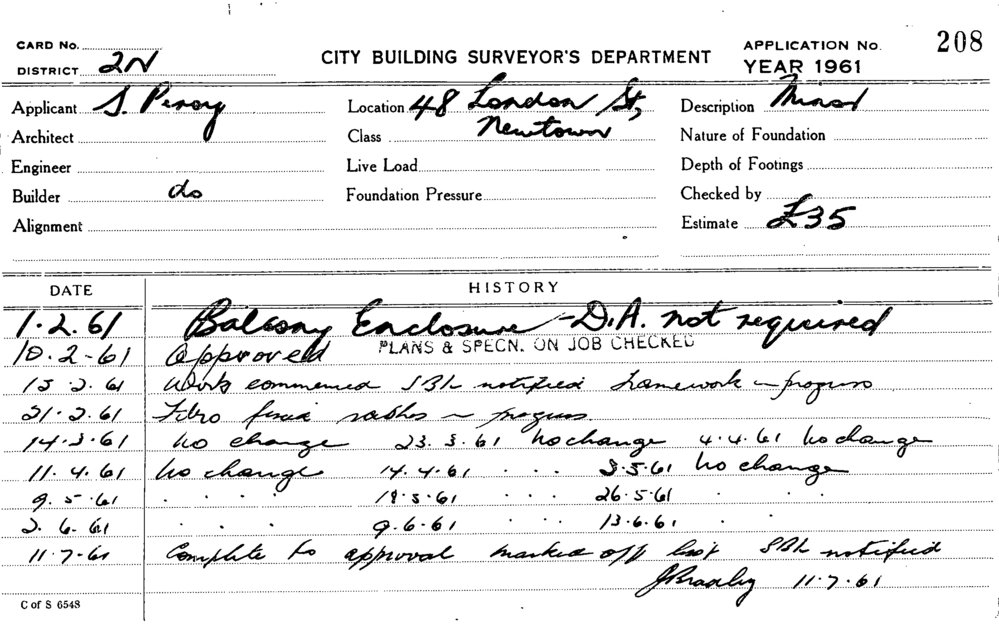 CARD No.
DISTRICT 2N
CITY BUILDING SURVEYOR'S DEPARTMENT
APPLICATION No. 208
YEAR 1961
Applicant S. Percy
Location 48 London St,
Description Minor
Architect
Class Newtown
Nature of Foundation
Engineer
Live Load
Depth of Footings
Builder do
Foundation Pressure
Checked by
Alignment
Estimate £35
DATE HISTORY
1.2.61 Balcony Enclosure - D.A. not required
10.2-61 Approved PLANS & SPECN. ON JOB CHECKED
15.2.61 Work commenced notified framework in progress
21.2.61 Fibro in progress
14.3.61 No change 23.3.61 No change 4.4.61 No change
11.4.61 No change 14.4.61 . . . 3.5.61 No change
9.5.61 . . . . 19.5.61 . . . 26.5.61 . .
2.6.61 . . . 9.6.61 . . 13.6.61 . .
11.7.61 Complete to approval marked off list notified
J Bradley 11.7.61
C of S 6548